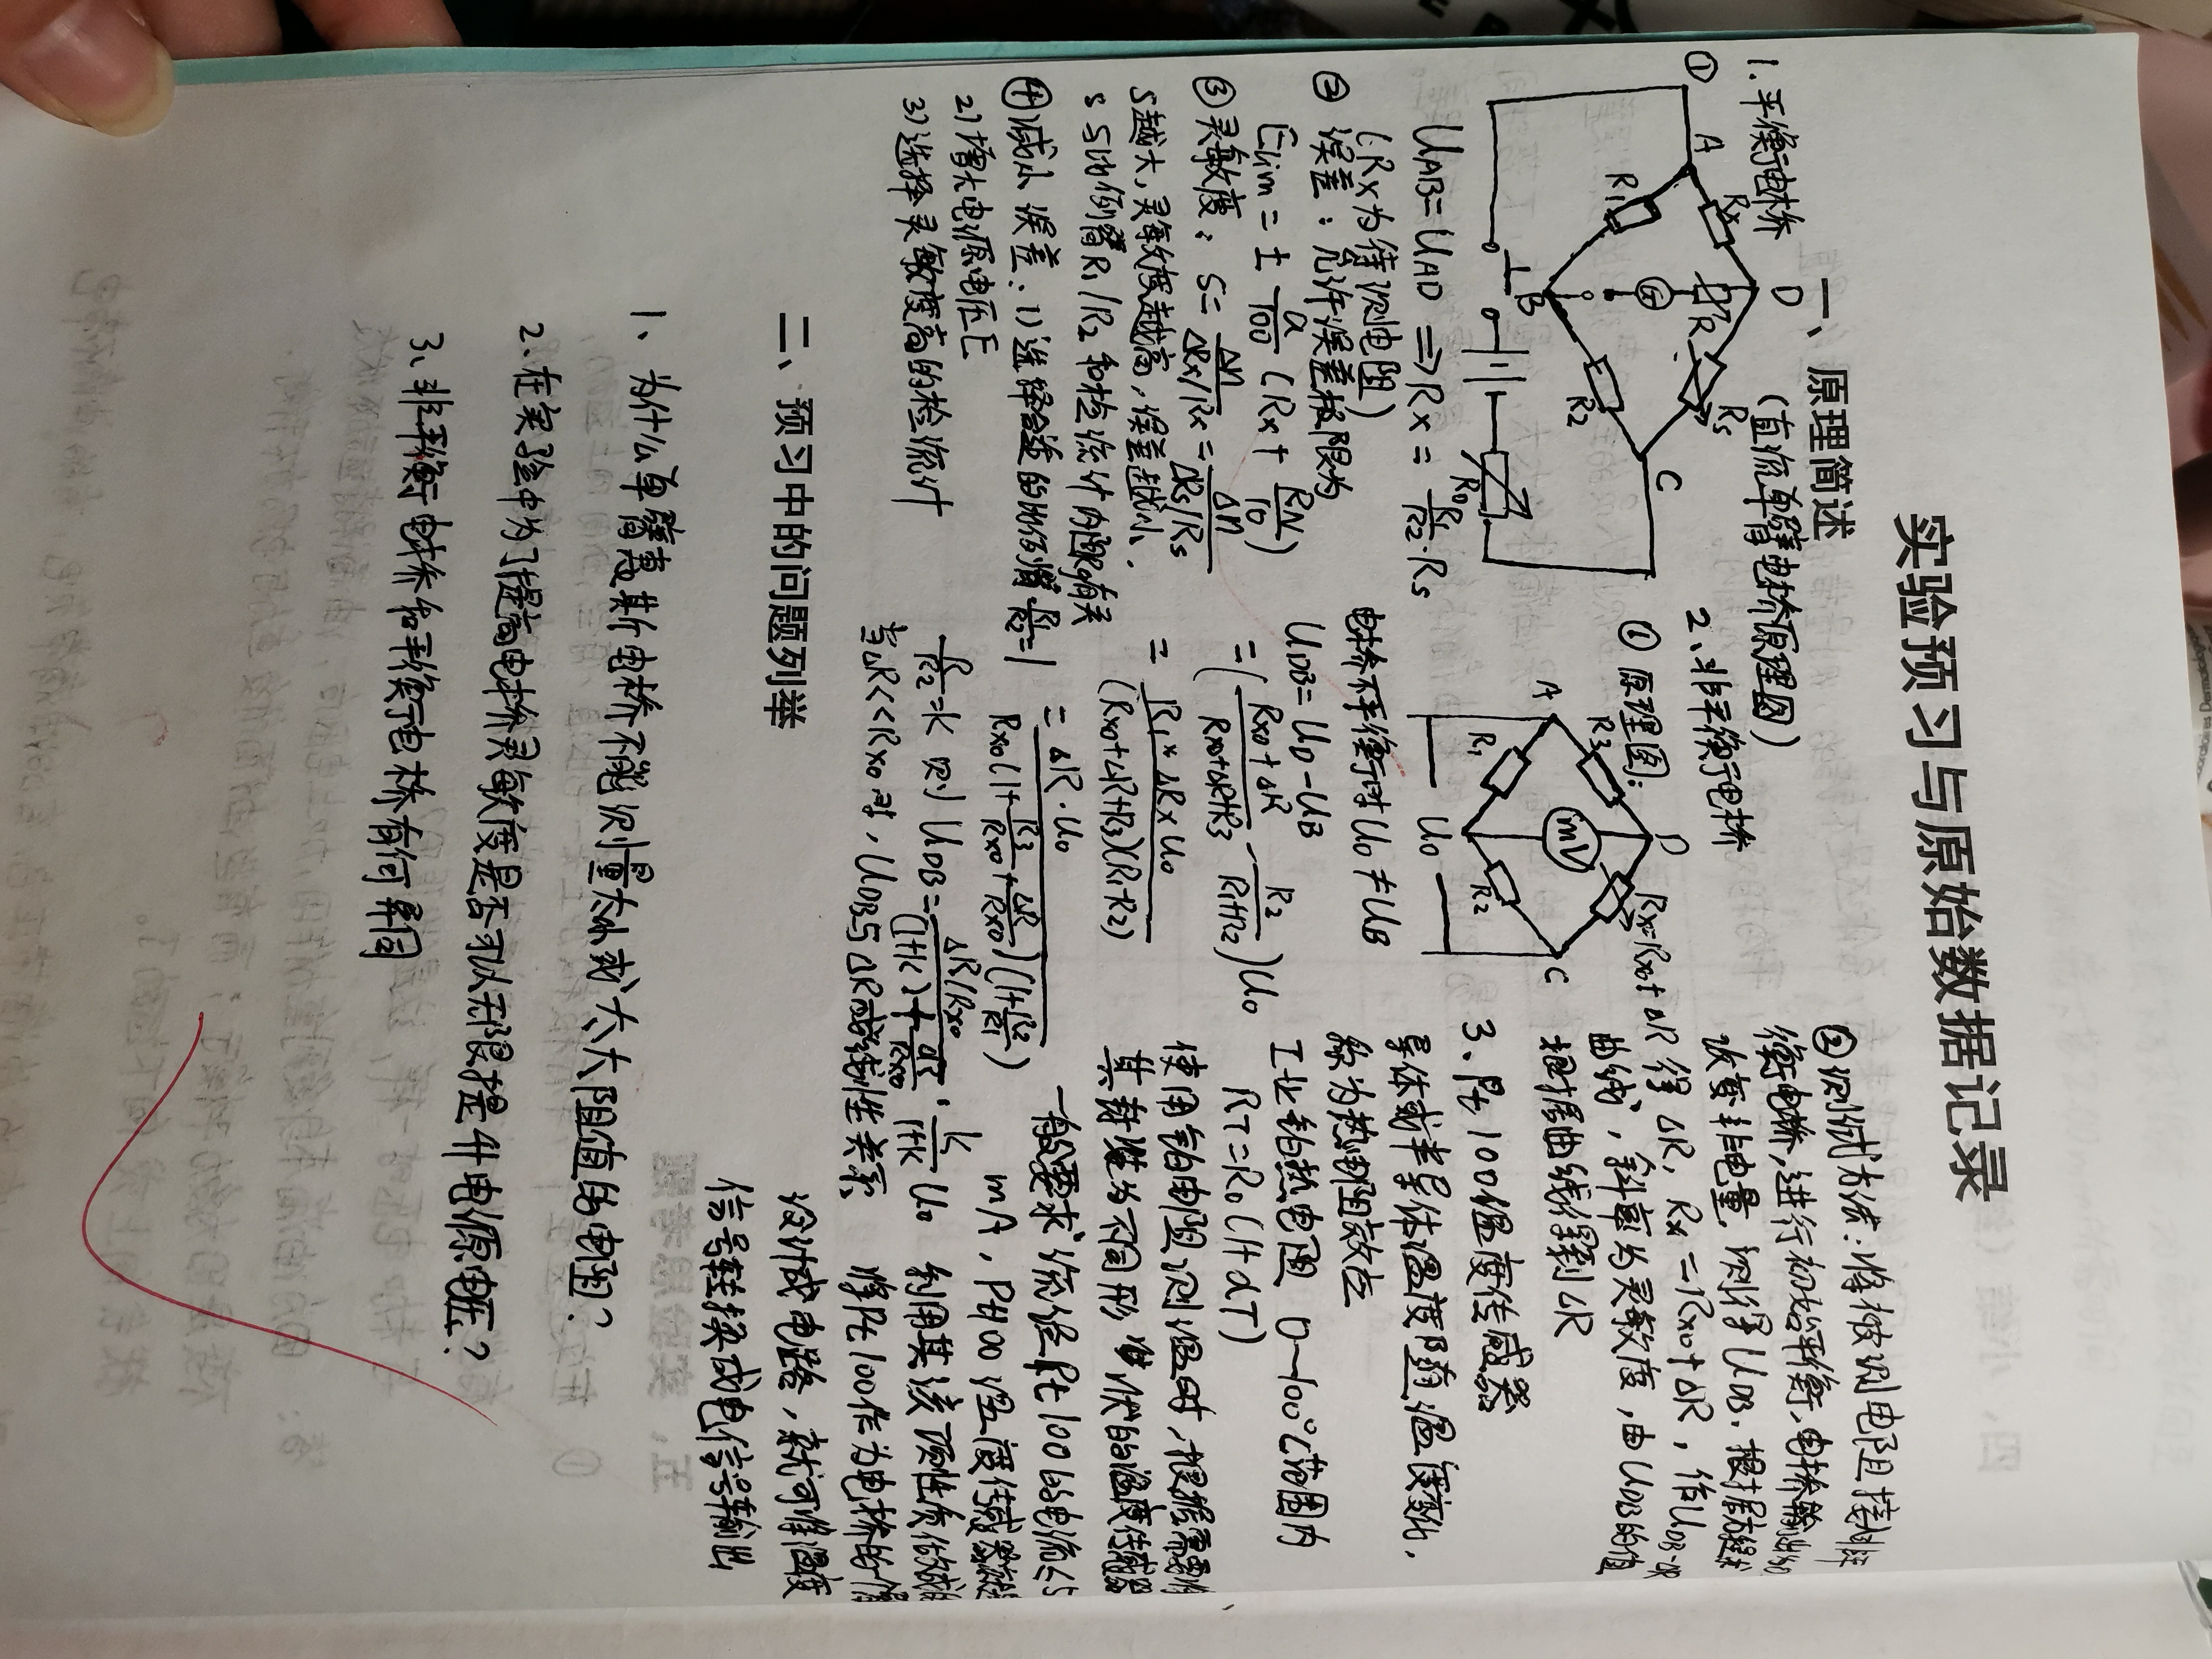 实验预习与原始数据记录
一、原理简述
1.平衡电桥 (直流单臂电桥原理图)
①
A
Rx
D
R1
G
R
Rs
B
R2
C
R0
UAB=UAD ⇒ Rx = R1/R2·Rs
(Rx为待测电阻)
② 误差:允许误差极限为
Elim = ± a/100 (Rx + RN/10)
③ 灵敏度: S = Δn/(ΔRx/Rx) = Δn/(ΔRs/Rs)
S越大,灵敏度越高,误差越小.
S与比例臂R1/R2和检流计内阻有关
④减小误差:1)选择合适的比例臂 R1/R2=1
2)增大电源电压E
3)选择灵敏度高的检流计
2、非平衡电桥
① 原理图:
A
R3
D
Rx=Rx0+ΔR
R1
mV
R2
C
U0
电桥不平衡时 UD ≠ UB
UDB = UD - UB
= ( (Rx0+ΔR)/(Rx0+ΔR+R3) - R2/(R1+R2) ) U0
= R1*ΔR×U0/(Rx0+ΔR+R3)(R1+R2)
= ΔR·U0/Rx0(1+R3/Rx0+ΔR/Rx0)(1+R2/R1)
R1/R2=K 则 UDB = (ΔR/Rx0)/((1+K)+ΔR/Rx0)·K/(1+K) U0
当ΔR<<Rx0时,UDB与ΔR成线性关系
②测试方法:将被测电阻接非
衡电桥,进行初始平衡,电桥输出为0
改变非电量,测得UDB.根据
得ΔR, Rx=Rx0+ΔR,作UDB-ΔR
曲线,斜率为灵敏度,由UDB的值
根据曲线得到ΔR
3、Pt100温度传感器
导体或半导体温度随温度变化,
称为热电阻效应
工业铂热电阻 0~100℃范围内
RT=R0(1+αT)
使用铂电阻测温时,根据需要将
其封装为不同形状的温度传感器
一般要求流经Pt100的电流≤5
mA,Pt100温度传感
利用其该项性质
将Pt100作为电桥的一臂
设计成电路,就可将温度
信号转换成电信号输出
二、预习中的问题列举
1、为什么单臂惠斯电桥不能测量太小或太大阻值的电阻?
2、在实验中为了提高电桥灵敏度是否可以无限提升电源电压?
3、非平衡电桥和平衡电桥有何异同